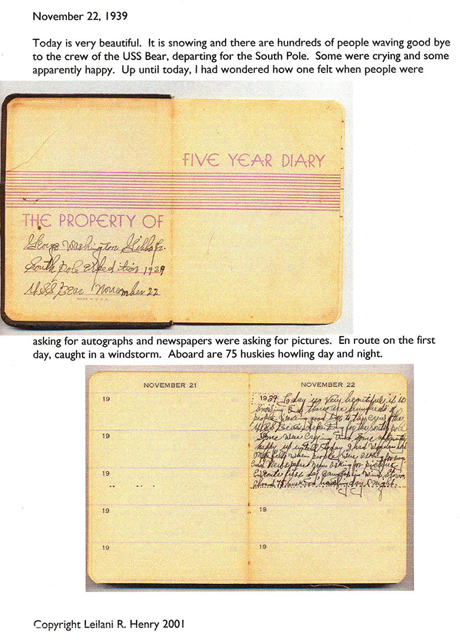 November 22, 1939
Today is very beautiful. It is snowing and there are hundreds of people waving good bye
to the crew of the USS Bear, departing for the South Pole. Some were crying and some
apparently happy. Up until today, I had wondered how one felt when people were
FIVE YEAR DIARY
THE PROPERTY OF
George Washington Gibbs Jr.
South Pole Expedition 1939
USS Bear November 22
asking for autographs and newspapers were asking for pictures. En route on the first
day, caught in a windstorm. Aboard are 75 huskies howling day and night.
NOVEMBER 21
19
19
19
19
19
NOVEMBER 22
1939 Today is very beautiful, it is
snowing and there are hundreds of
people waving good bye to the crew of the
USS Bear, departing for the south pole
Some were crying and some
happy up until today I had wondered
how one felt when people were asking for
and newspapers asking for pictures
day
19
19
19
Copyright Leilani R. Henry 2001